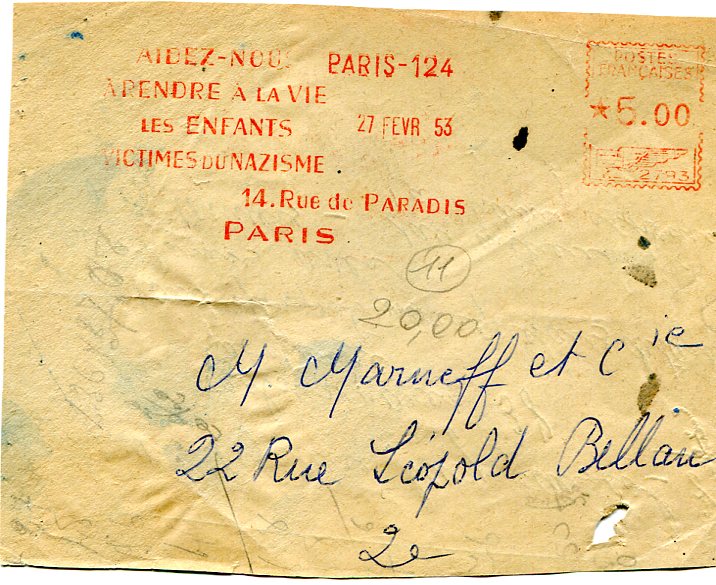 AIDEZ-NOUS PARIS-124
A RENDRE A LA VIE
LES ENFANTS 27 FEVR 53
VICTIMES DU NAZISME
14. Rue de PARADIS
PARIS
POSTES
FRANÇAISES
★5.00
2793
11
20,00
M. Marneff et Cie
22 Rue Léopold Bellan
2e